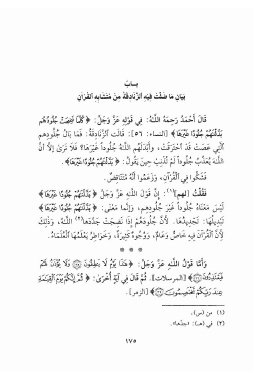 بـاب
بيان ما ضلّت فيه الزنادقة من متشابه القرآن
قال أحمد رحمه الله: في قوله عزّ وجلّ: ﴿كُلَّمَا نَضِجَتْ جُلُودُهُم
بَدَّلْنَاهُمْ جُلُودًا غَيْرَهَا﴾ [النساء: ٥٦]: قالت الزنادقة: فما بال جلودهم
التي عصت قد احترقت، وأبدلهم الله جلوداً غيرها؟ فلا نرى إلّا أنّ
الله يعذّب جلوداً لم تذنب حين يقول: ﴿بَدَّلْنَاهُمْ جُلُودًا غَيْرَهَا﴾.
فشكّوا في القرآن، وزعموا أنّه متناقض.
فقلت [لهم](١): إنّ قول الله عزّ وجلّ ﴿بَدَّلْنَاهُمْ جُلُودًا غَيْرَهَا﴾
ليس معناه جلوداً غير جلودهم، وإنّما معنى: ﴿بَدَّلْنَاهُمْ جُلُودًا غَيْرَهَا﴾
تبديلُها: تجديدُها. لأنّ جلودهم إذا نضجت جدّدها(٢) الله، وذلك
لأنّ القرآن فيه خاصّ وعامّ، ووجوه كثيرة، وخواطر يعلمها العلماء.
* * *
وأمّا قول الله عزّ وجلّ: ﴿هَذَا يَوْمُ لَا يَنطِقُونَ ۝ وَلَا يُؤْذَنُ لَهُمْ
فَيَعْتَذِرُونَ ۝﴾ [المرسلات]. ثمّ قال في آية أخرى: ﴿ثُمَّ إِنَّكُمْ يَوْمَ الْقِيَامَةِ
عِندَ رَبِّكُمْ تَخْتَصِمُونَ ۝﴾ [الزمر].
(١) من (س).
(٢) في (هـ): «جدّد».
١٧٥